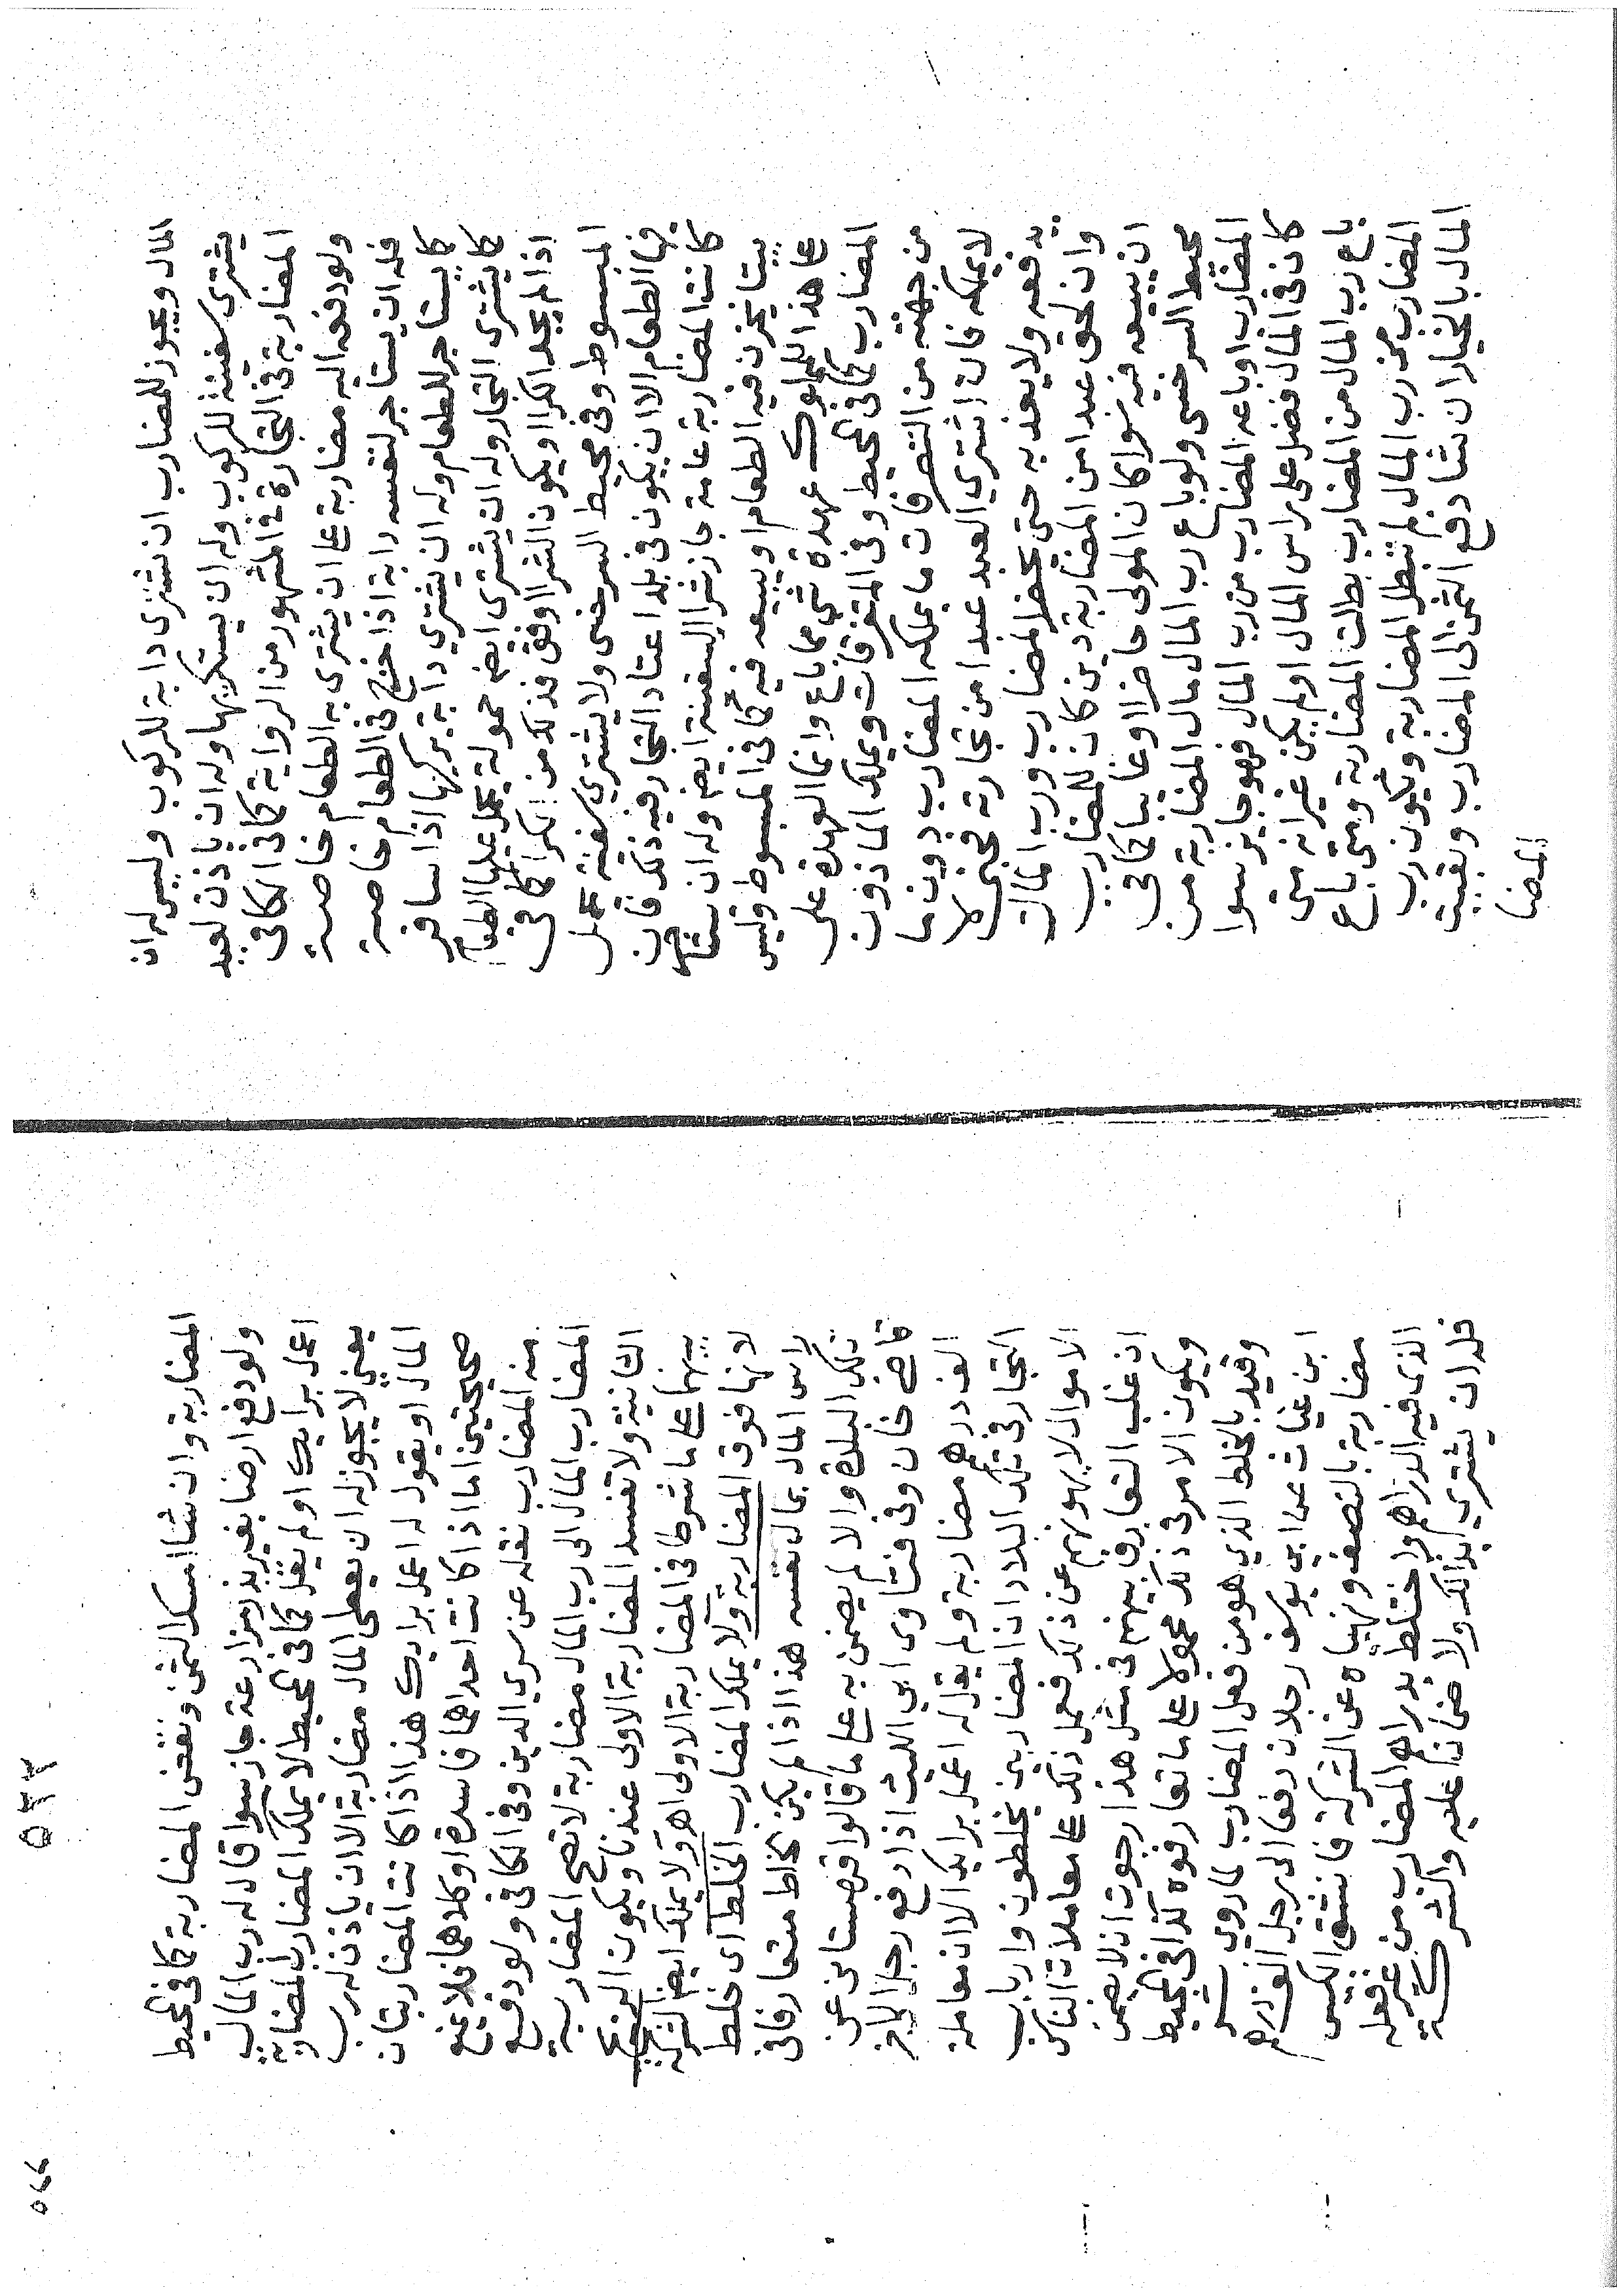 المال ويجوز للمضارب ان يشترى دابة للركوب وليس له ان
يشترى سفينة للركوب وله ان يستكريها وله ان ياذن لعبد
المضاربة فى التجارة فى المشهور من الرواية كما فى الكافى
ولو دفع اليه مضاربة على ان يشترى به الطعام خاصة
فله ان يستاجر لنفسه دابة اذا خرج فى الطعام خاصة
كما يستاجر للطعام وله ان يشتري دابة يركبها اذا سافر
كما يشترى التجار وله ان يشترى ايضا حمولة يحمل عليها الطعام
اذا لم يجد الكرا او يكون الشرا اوفق فذلك من الكرا كما فى
المبسوط وفى محيط السرخسى ولا يشتري سفينة يحمل
فيها الطعام الا ان يكون فى بلد اعتاد التجار فيه ذلك فان
كانت المضاربة عامة جاز شرا السفينة ايضا وله ان يستاجر
بيتا يخزن فيه الطعام او يبيعه فيه كما فى المبسوط وليس
على هذا المملوك عهدة شي مما باع وانما العهدة على
المضارب كما فى المحيط وفى المتفرقات ويملك الماذون
من جهته من التصرفات ما يملكه المضارب دون ما
لا يملكه فان اشتري العبد عبدا من تجارته فجنى لا
يدفعه ولا يفديه حتى يحضر المضارب ورب المال
وان لحق عبدا من المضاربة دين كان للمضارب
ان يبيعه فيه سوا كان المولى حاضرا او غايبا كما فى
محيط السرخسى ولو باع رب المال مال المضاربة من
المضارب او باعه المضارب من رب المال فهو جايز سوا
كان فى المال فضل على راس المال اولم يكن غير انه متى
باع رب المال من المضارب بطلت المضاربة ومتى باع
المضارب من رب المال لم تبطل المضاربة ويكون رب
المال بالخيار ان شا دفع الثمن الى المضارب وبقيت
المضا
٥٢٢
٥٢٢
المضاربة وان شا امسك الثمن ونقض المضاربة كما فى المحيط
ولو دفع ارضا بغير بذر مزارعة جاز سوا قال له رب المال
اعمل برايك او لم يقل كما فى المحيط لا يملك المضارب المضاربة
يعني لا يجوز له ان يعطى المال مضاربة الا ان ياذن له رب
المال او يقول له اعمل برايك هذا اذا كانت المضاربتان
صحيحتين اما اذا كانت احداهما فاسدة او كلاهما فلا يمنع
منه المضارب نقله عن سري الدين وفى الكافى ولو دفع
المضارب المال الى رب المال مضاربة لا تصح المضاربة
الثانية ولا تفسد المضاربة الاولى عندنا ويكون الربح
بينهما على ما شرطا فى المضاربة الاولى اهـ ولا يملك ايضا الشركة
لانها فوق المضاربة ولا يملك المضارب الخلط اى خلط
راس المال بمال نفسه هذا اذا لم يكن بخلط متعارفا فى
تلك البلدة والا لم يضمن به على ما قالوا قهستانى عن
قاضى خان وفى فتاوى ابى الليث اذا دفع رجل الى اخر
الف درهم مضاربة ولم يقل له اعمل برايك الا ان معاملة
التجار فى تلك البلاد ان المضاربين يخلطون وارباب
الاموال لا ينهونهم عن ذلك فعمل ذلك على معاملات الناس
ان غلب التعارف بينهم فى مثل هذا رجوت ان لا يضمن
ويكون الامر فى ذلك محمولا على ما تعارفوه كذا فى المحيط
وقيد بالخلط الذي هو من فعل المضارب لما روي بشر
ابن غياث عن ابي يوسف رجلان دفعا الى رجل الف درهم
مضاربة بالنصف ونهياه عن الشركة فانشق الكيس
الذى فيه الدراهم واختلط بدراهم المضارب من غير فعله
فله ان يشتري بذالك ولا ضمان عليه والشركة